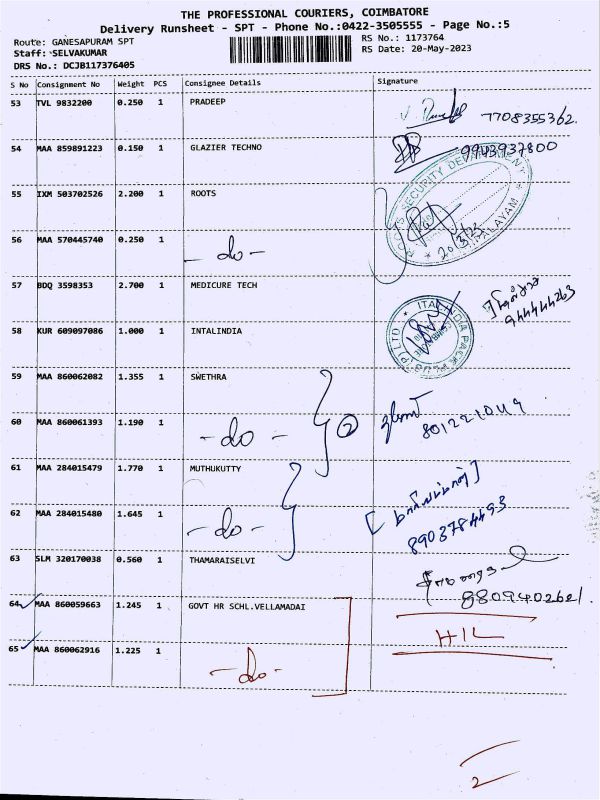 THE PROFESSIONAL COURIERS, COIMBATORE
Delivery Runsheet - SPT - Phone No.:0422-3505555 - Page No.:5
Route: GANESAPURAM SPT RS No.: 1173764
Staff: SELVAKUMAR RS Date: 20-May-2023
DRS No.: DCJB117376405
S No Consignment No Weight PCS Consignee Details Signature
53 TVL 9832200 0.250 1 PRADEEP 7708355362.
54 MAA 859891223 0.150 1 GLAZIER TECHNO 9903937800
55 IXM 503702526 2.200 1 ROOTS
56 MAA 570445740 0.250 1 -do-
57 BDQ 3598353 2.700 1 MEDICURE TECH
58 KUR 609097086 1.000 1 INTALINDIA
59 MAA 860062082 1.355 1 SWETHRA
60 MAA 860061393 1.190 1 -do- 2
61 MAA 284015479 1.770 1 MUTHUKUTTY
62 MAA 284015480 1.645 1 -do- 8903784493
63 SLM 320170038 0.560 1 THAMARAISELVI 8809402621.
64 MAA 860059663 1.245 1 GOVT HR SCHL.VELLAMADAI
HIL
65 MAA 860062916 1.225 1 -do-
2